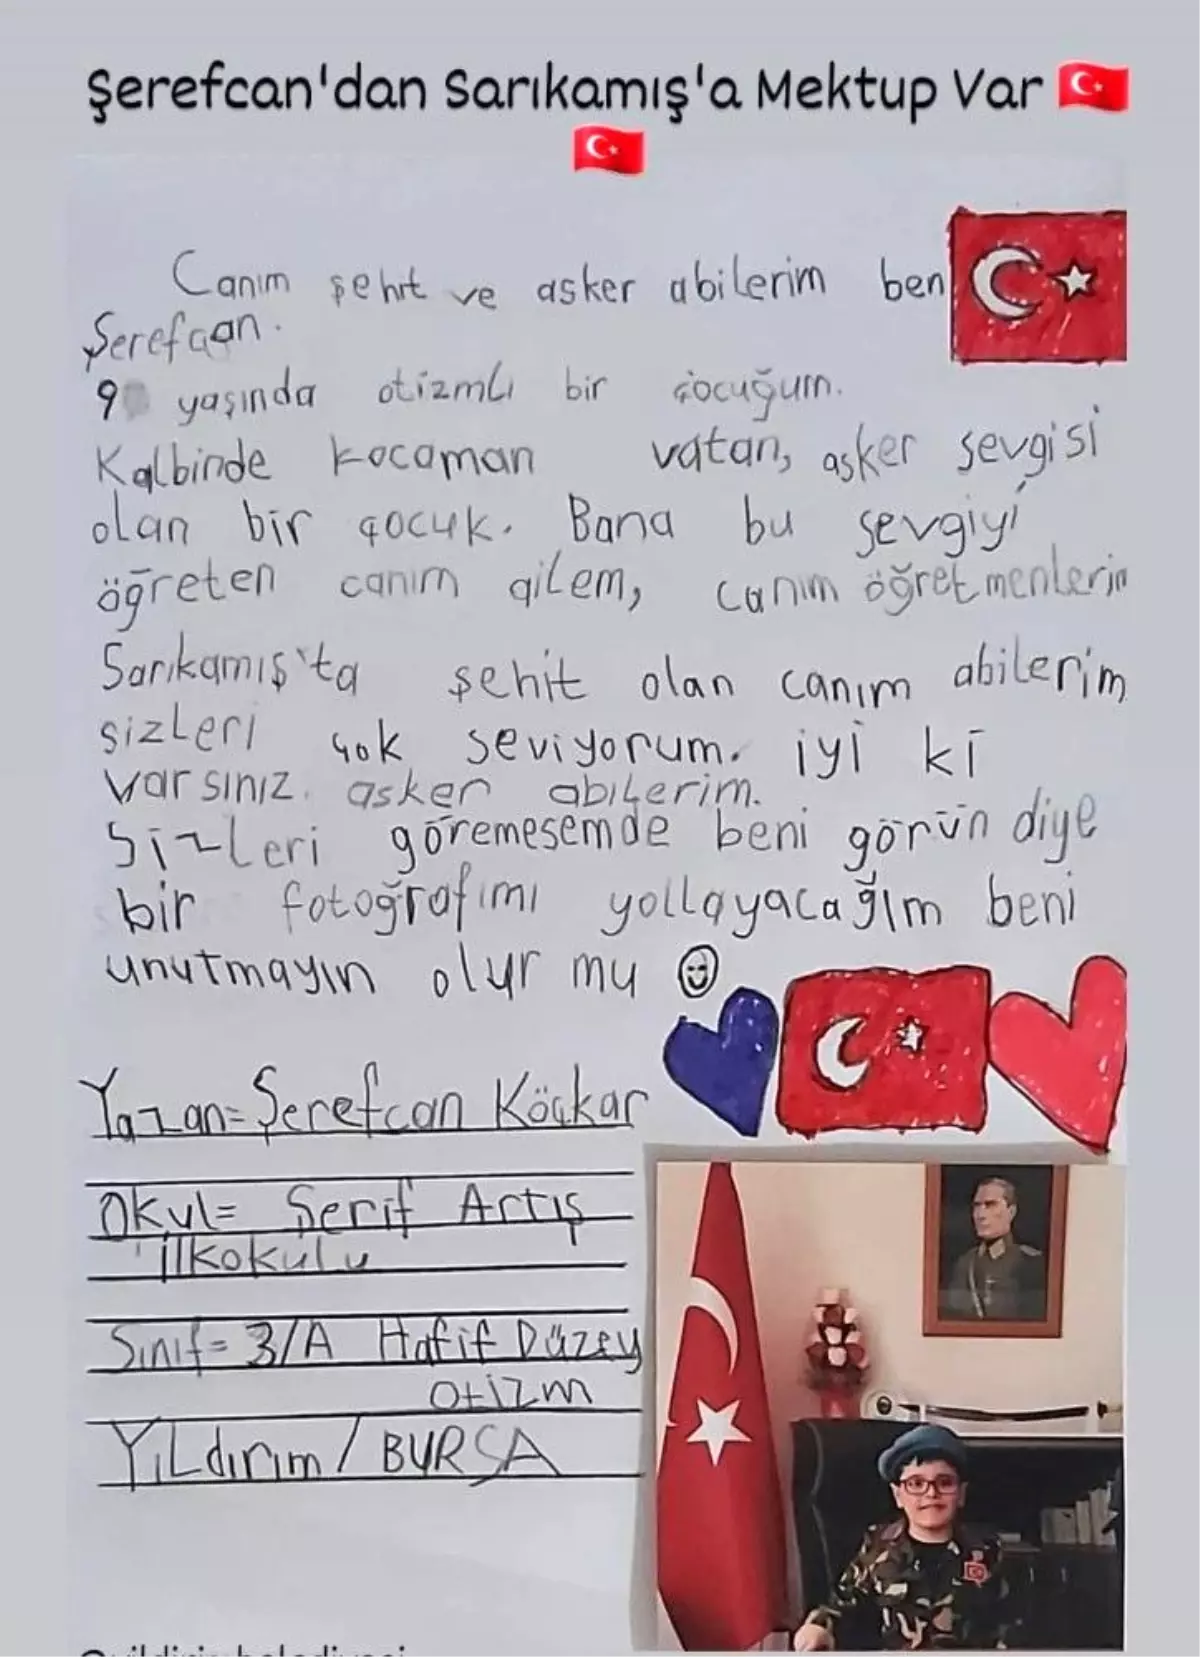 Şerefcan'dan Sarıkamış'a Mektup Var 🇹🇷
🇹🇷
Canım şehit ve asker abilerim ben
Şerefcan.
9 yaşında otizmli bir çocuğum.
Kalbinde kocaman vatan, asker sevgisi
olan bir çocuk. Bana bu sevgiyi
öğreten canım ailem, canım öğretmenlerim
Sarıkamış'ta şehit olan canım abilerim
sizleri çok seviyorum. iyi ki
varsınız. asker abilerim.
Sizleri göremesemde beni görün diye
bir fotoğrafımı yollayacağım beni
unutmayın olur mu
Yazan= Şerefcan Köçkar
Okul= Şerif Artış
ilkokulu
Sınıf= 3/A Hafif Düzey
otizm
Yıldırım / BURSA